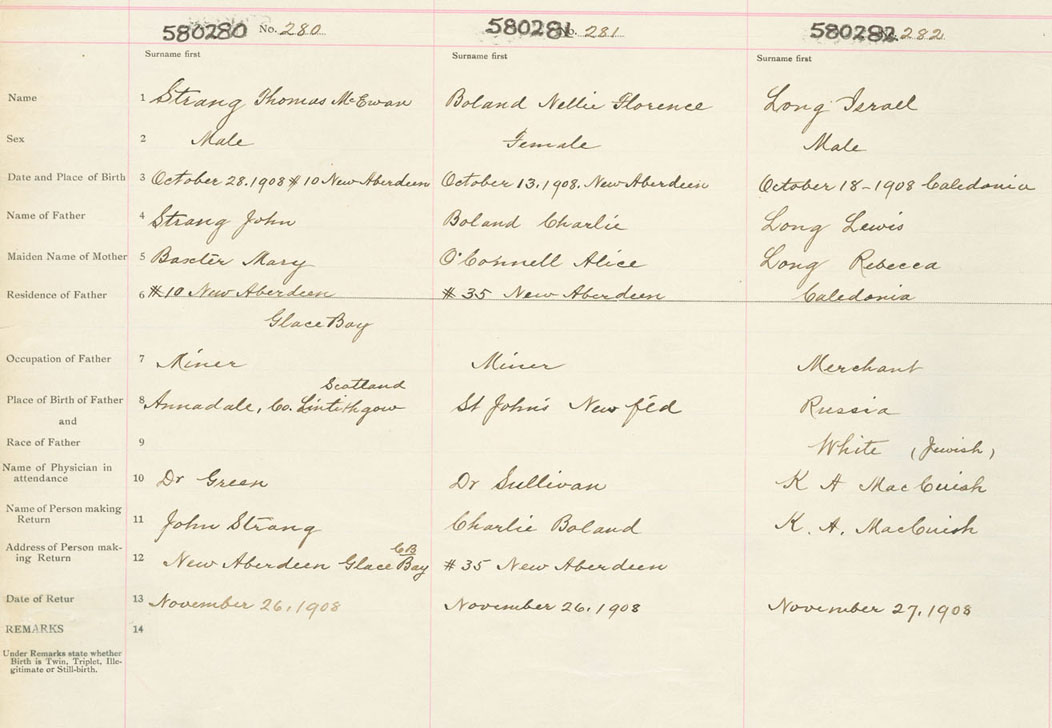 580280 No. 280 580281 No. 281 580282 No. 282
Surname first Surname first Surname first
Name 1 Strang Thomas McEwan Boland Nellie Florence Long Israel
Sex 2 Male Female Male
Date and Place of Birth 3 October 28.1908 # 10 New Aberdeen October 13, 1908. New Aberdeen October 18-1908 Caledonia
Name of Father 4 Strang John Boland Charlie Long Lewis
Maiden Name of Mother 5 Baxter Mary O'Connell Alice Long Rebecca
Residence of Father 6 #10 New Aberdeen # 35 New Aberdeen Caledonia
Glace Bay
Occupation of Father 7 Miner Miner Merchant
Scotland
Place of Birth of Father 8 Annadale, Co. Lintithgow St John's Newf'ld Russia
and
Race of Father 9 White (Jewish)
Name of Physician in
attendance 10 Dr Green Dr Sullivan K A MacCuish
Name of Person making
Return 11 John Strang Charlie Boland K. A. MacCuish
Address of Person mak-
ing Return 12 New Aberdeen Glace Bay CB # 35 New Aberdeen
Date of Retur 13 November 26, 1908 November 26, 1908 November 27, 1908
REMARKS 14
Under Remarks state whether
Birth is Twin, Triplet, Ille-
gitimate or Still-birth.